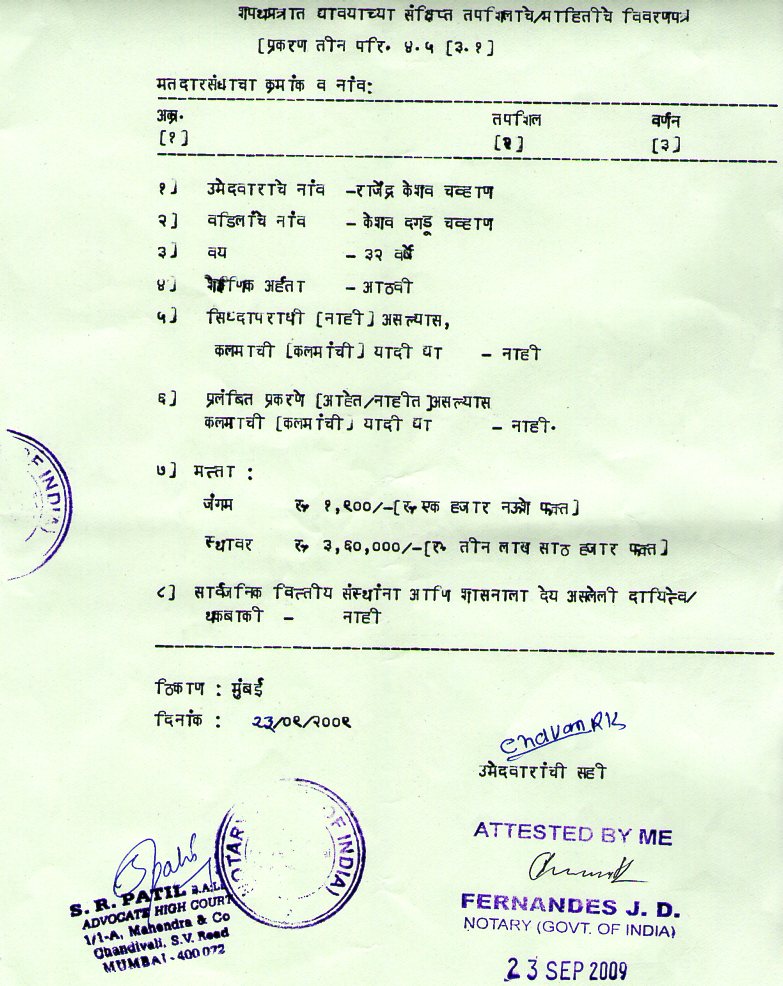 शपथपत्रात द्यावयाच्या संक्षिप्त तपशिलाचे/माहितीचे विवरणपत्र
[प्रकरण तीन परि. ४.५ [३.१]
मतदारसंघाचा क्रमांक व नांव:
अक्र. तपशिल वर्णन
[१] [२] [३]
१] उमेदवाराचे नांव -राजेंद्र केशव चव्हाण
२] वडिलांचे नांव - केशव दगडू चव्हाण
३] वय - ३२ वर्षे
४] शैक्षणिक अर्हता - आठवी
५] सिध्दापराधी [नाही] असल्यास,
कलमाची [कलमांची] यादी द्या - नाही
६] प्रलंबित प्रकरणे [आहेत/नाहीत]असल्यास
कलमाची [कलमांची] यादी द्या - नाही.
७] मत्ता :
जंगम रु. १,९००/-[रु. एक हजार नऊशे फक्त]
स्थावर रु. ३,६०,०००/-[रु. तीन लाख साठ हजार फक्त]
८] सार्वजनिक वित्तीय संस्थांना आणि शासनाला देय असलेली दायित्वे/
थकबाकी - नाही
ठिकाण : मुंबई
दिनांक : 23/०९/२००९
Chavan RK
उमेदवारांची सही
ATTESTED BY ME
FERNANDES J. D.
NOTARY (GOVT. OF INDIA)
23 SEP 2009
S. R. PATIL B.A.LL.
ADVOCATE HIGH COURT
1/1-A, Mahendra & Co
Chandivali, S.V. Road
MUMBAI - 400 072
NOTARY OF INDIA)
OF INDIA)